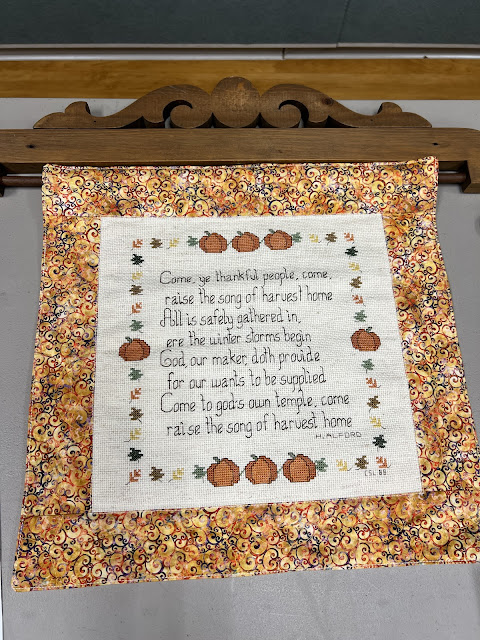 Come, ye thankful people, come,
raise the song of harvest home
All is safely gathered in,
ere the winter storms begin
God, our maker, doth provide
for our wants to be supplied
Come to god's own temple, come
raise the song of harvest home
H. ALFORD
CSL 89